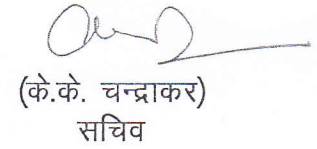 (के.के. चन्द्राकर)
सचिव